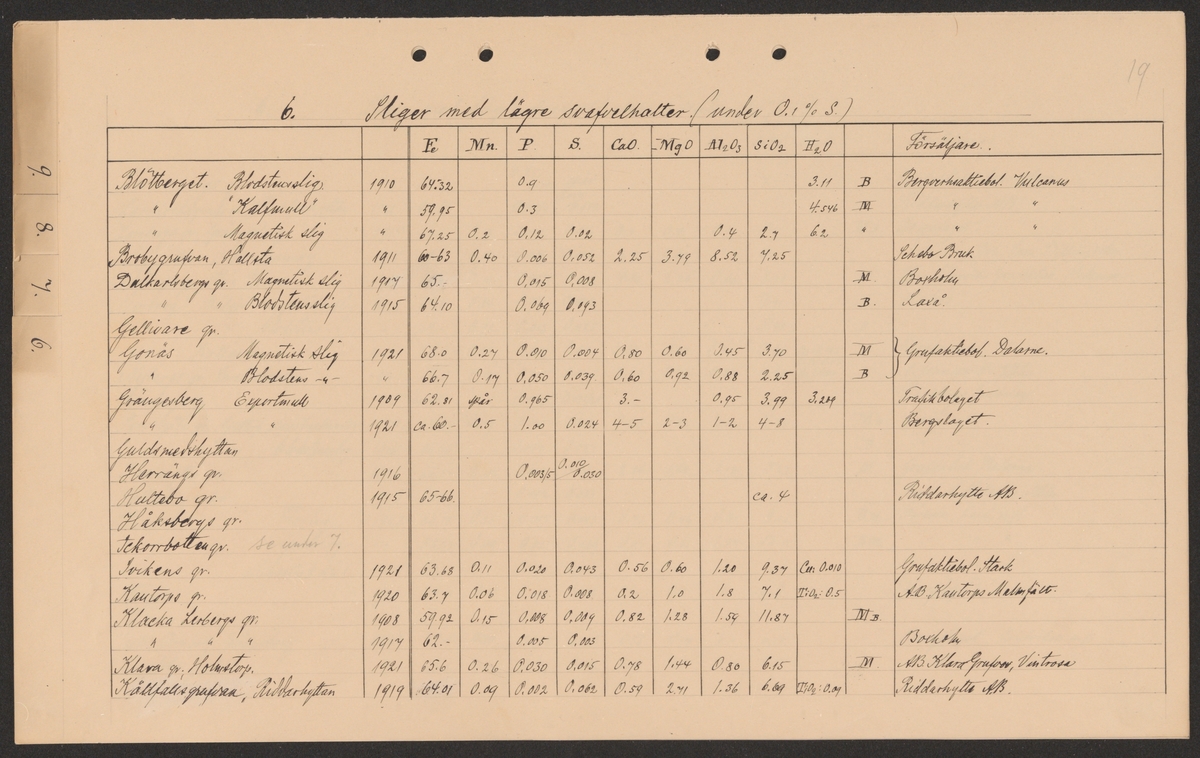 19
6. Sliger med lägre svafvelhalter. (under 0.1 % S.)
Fe Mn. P S. CaO. MgO Al2O3 SiO2 H2O Försäljare.
Blötberget. Blodstensslig 1910 64.32 0.9 3.11 B Bergverksaktiebol. Vulcanus
" "Kalfmull" " 59.95 0.3 4.546 M " "
" Magnetisk slig " 67.25 0.2 0.12 0.02 0.4 2.7 6.2 " " "
Brobygrufvan, Hallsta 1911 60-63 0.40 0.006 0.052 2.25 3.79 8.52 7.25 Schebo Bruk
Dalkarlsbergs gr. Magnetisk slig 1917 65.- 0.015 0.008 M. Boxholm
" " Blodstensslig 1915 64.10 0.069 0.093 B. Laxå.
Gellivare gr.
Gonäs Magnetisk slig 1921 68.0 0.27 0.010 0.004 0.80 0.60 3.45 3.70 M } Grufaktiebol. Dalarne.
" Blodstens -"- " 66.7 0.17 0.050 0.039 0.60 0.92 0.88 2.25 B
Grängesberg Exportmull 1909 62.81 spår 0.965 3.- 0.95 3.99 3.209 Trafikbolaget
" " 1921 ca. 60.- 0.5 1.00 0.024 4-5 2-3 1-2 4-8 Bergslaget.
Guldsmedshyttan
Herrängs gr. 1916 0.003/5 0.010/0.030
Hultebo gr. 1915 65-66 ca. 4 Riddarhytte AB.
Håksbergs gr.
Ickorrbotten gr. se under 7.
Ivikens gr. 1921 63.68 0.11 0.020 0.043 0.56 0.60 1.20 9.37 Cu: 0.010 Grufaktiebol. Stark
Kantorps gr. 1920 63.7 0.06 0.018 0.008 0.2 1.0 1.8 7.1 TiO2: 0.5 AB. Kantorps Malmfält.
Klacka Lerbergs gr. 1908 59.92 0.15 0.008 0.009 0.82 1.28 1.54 11.87 M B.
" " " 1917 62.- 0.005 0.003 Boxholm
Klara gr. Holmstorp. 1921 65.6 0.26 0.030 0.015 0.78 1.44 0.80 6.15 M AB. Klara Grufvor, Vintrosa
Källfallsgrufvan, Riddarhyttan 1919 64.01 0.09 0.002 0.062 0.59 2.71 1.36 6.69 TiO2: 0.09 Riddarhytte AB.
9. 8. 7. 6.